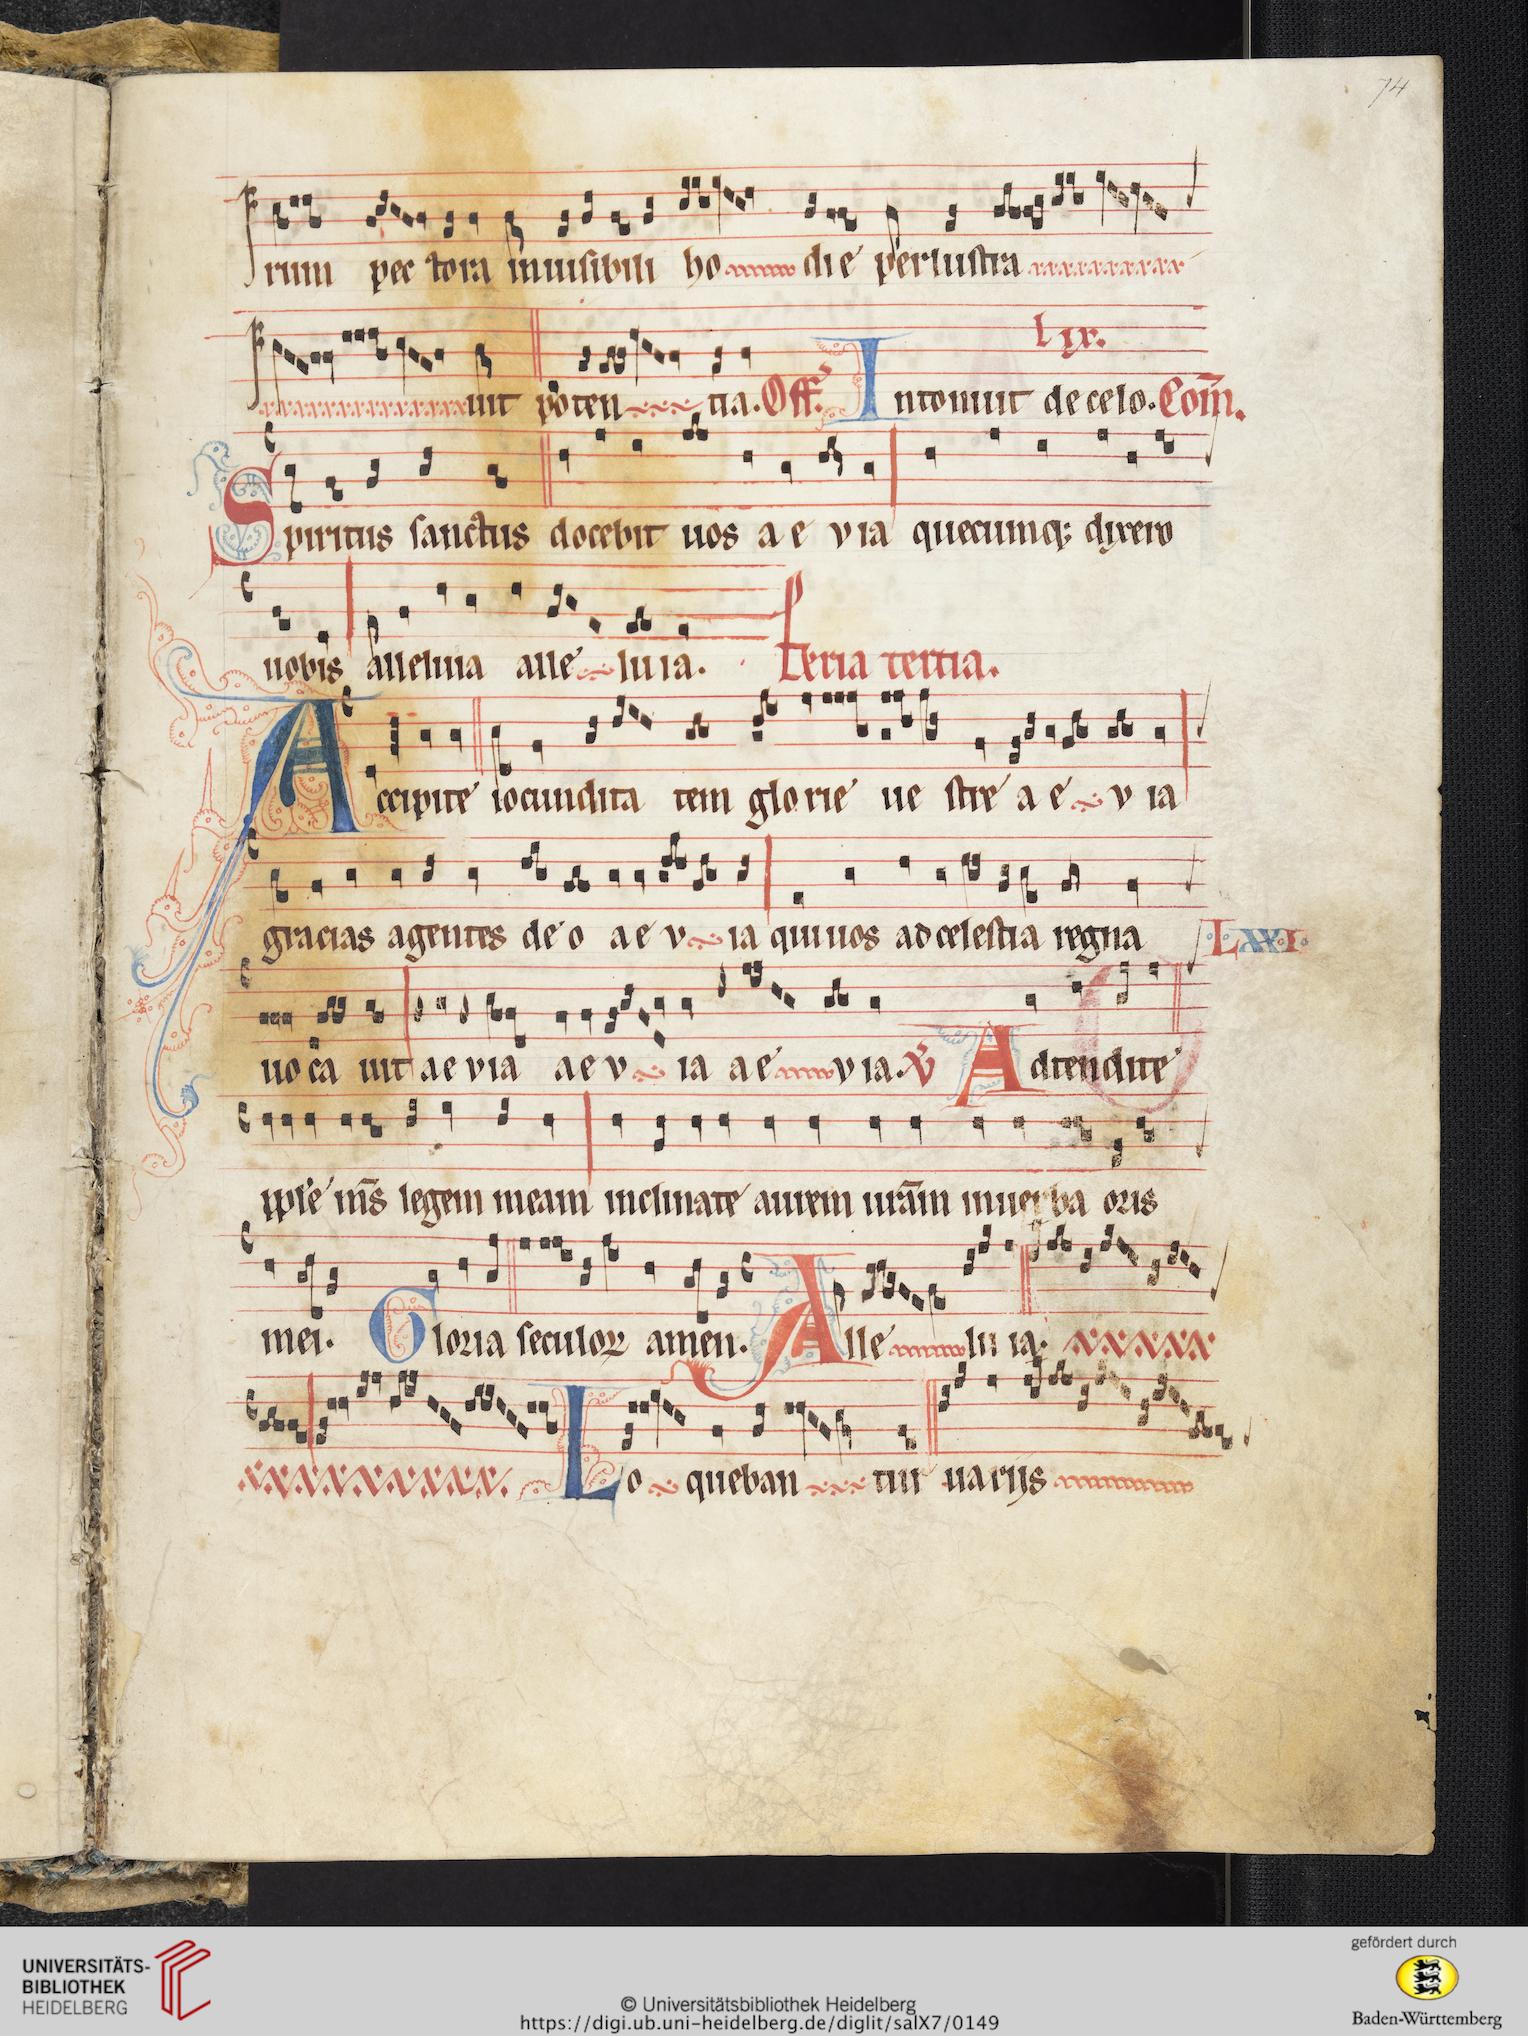 74
rum pec tora inuisibili ho die perlustra
lix.
uit poten tia. Off. Intonuit de celo. Com̄.
Spiritus sanctus docebit uos a e v ia quecumq; dixero
uobis alleluia alle luia. Feria tertia.
Accipite iocundita tem glorie ue stre a e v ia
gracias agentes deo a e v ia qui uos ad celestia regna LXXI
uoca uit a e v ia a e v ia a e v ia. Adtendite
pple ms legem meam inclinate aurem uram in uerba oris
mei. Gloria seculoꝝ amen. Alle lu ia.
Lo queban tur uarijs
UNIVERSITÄTS-
BIBLIOTHEK
HEIDELBERG
© Universitätsbibliothek Heidelberg
https://digi.ub.uni-heidelberg.de/diglit/salX7/0149
gefördert durch
Baden-Württemberg